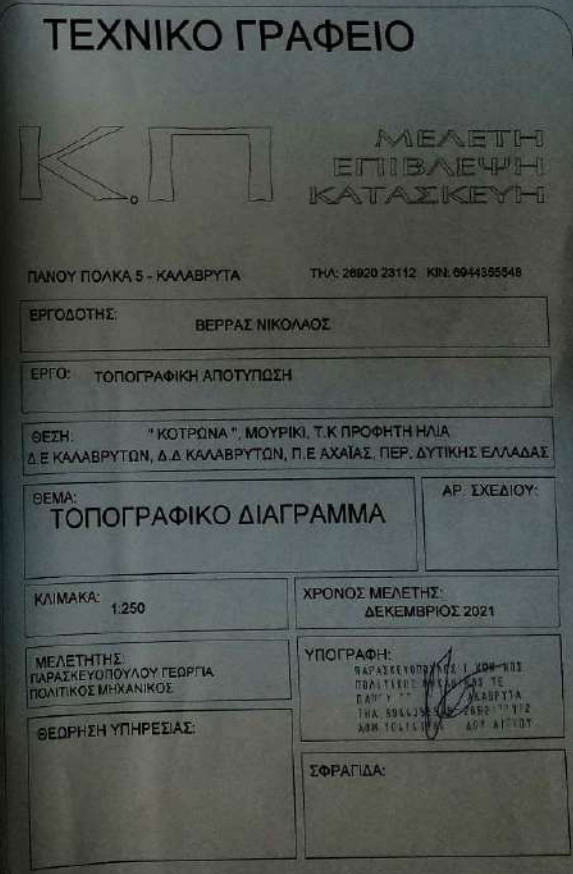 ΤΕΧΝΙΚΟ ΓΡΑΦΕΙΟ
Κ.Π
ΜΕΛΕΤΗ
ΕΠΙΒΛΕΨΗ
ΚΑΤΑΣΚΕΥΗ
ΠΑΝΟΥ ΠΟΛΚΑ 5 - ΚΑΛΑΒΡΥΤΑ ΤΗΛ: 26920 23112 ΚΙΝ: 6944355548
ΕΡΓΟΔΟΤΗΣ: ΒΕΡΡΑΣ ΝΙΚΟΛΑΟΣ
ΕΡΓΟ: ΤΟΠΟΓΡΑΦΙΚΗ ΑΠΟΤΥΠΩΣΗ
ΘΕΣΗ: " ΚΟΤΡΩΝΑ ", ΜΟΥΡΙΚΙ, Τ.Κ ΠΡΟΦΗΤΗ ΗΛΙΑ
Δ.Ε ΚΑΛΑΒΡΥΤΩΝ, Δ.Δ ΚΑΛΑΒΡΥΤΩΝ, Π.Ε ΑΧΑΪΑΣ, ΠΕΡ. ΔΥΤΙΚΗΣ ΕΛΛΑΔΑΣ
ΘΕΜΑ:
ΤΟΠΟΓΡΑΦΙΚΟ ΔΙΑΓΡΑΜΜΑ
ΑΡ. ΣΧΕΔΙΟΥ:
ΚΛΙΜΑΚΑ: 1:250
ΧΡΟΝΟΣ ΜΕΛΕΤΗΣ:
ΔΕΚΕΜΒΡΙΟΣ 2021
ΜΕΛΕΤΗΤΗΣ:
ΠΑΡΑΣΚΕΥΟΠΟΥΛΟΥ ΓΕΩΡΓΙΑ
ΠΟΛΙΤΙΚΟΣ ΜΗΧΑΝΙΚΟΣ
ΥΠΟΓΡΑΦΗ:
ΠΟΛΙΤΙΚΟΣ ΤΕ
ΤΗΛ.
ΑΦΜ ΔΟΥ ΑΙΓΙΟΥ
ΘΕΩΡΗΣΗ ΥΠΗΡΕΣΙΑΣ:
ΣΦΡΑΓΙΔΑ: